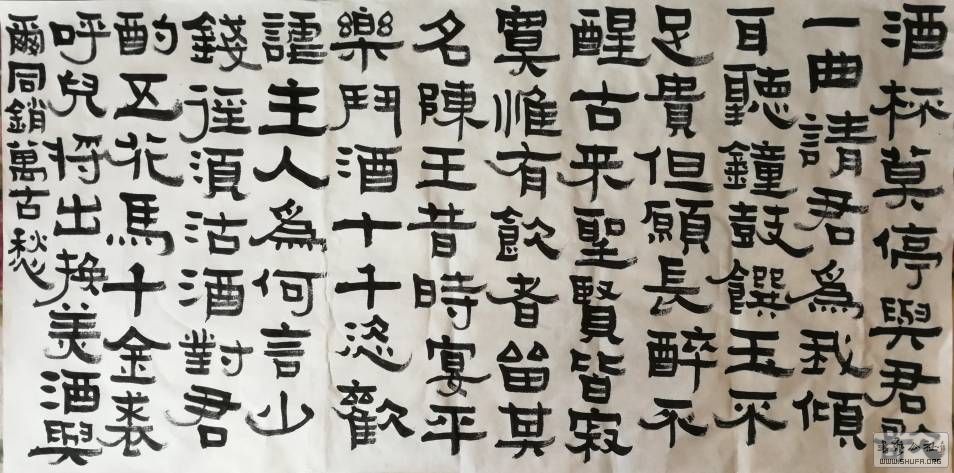 酒杯莫停與君歌
一曲請君為我傾
耳聽鐘鼓饌玉不
足貴但願長醉不
醒古来聖賢皆寂
寞惟有飲者留其
名陳王昔時宴平
樂鬥酒十千恣歡
謔主人為何言少
錢徑須沽酒對君
酌五花馬十金裘
呼兒将出換美酒與
爾同銷萬古愁
WWW.SHUFA.ORG